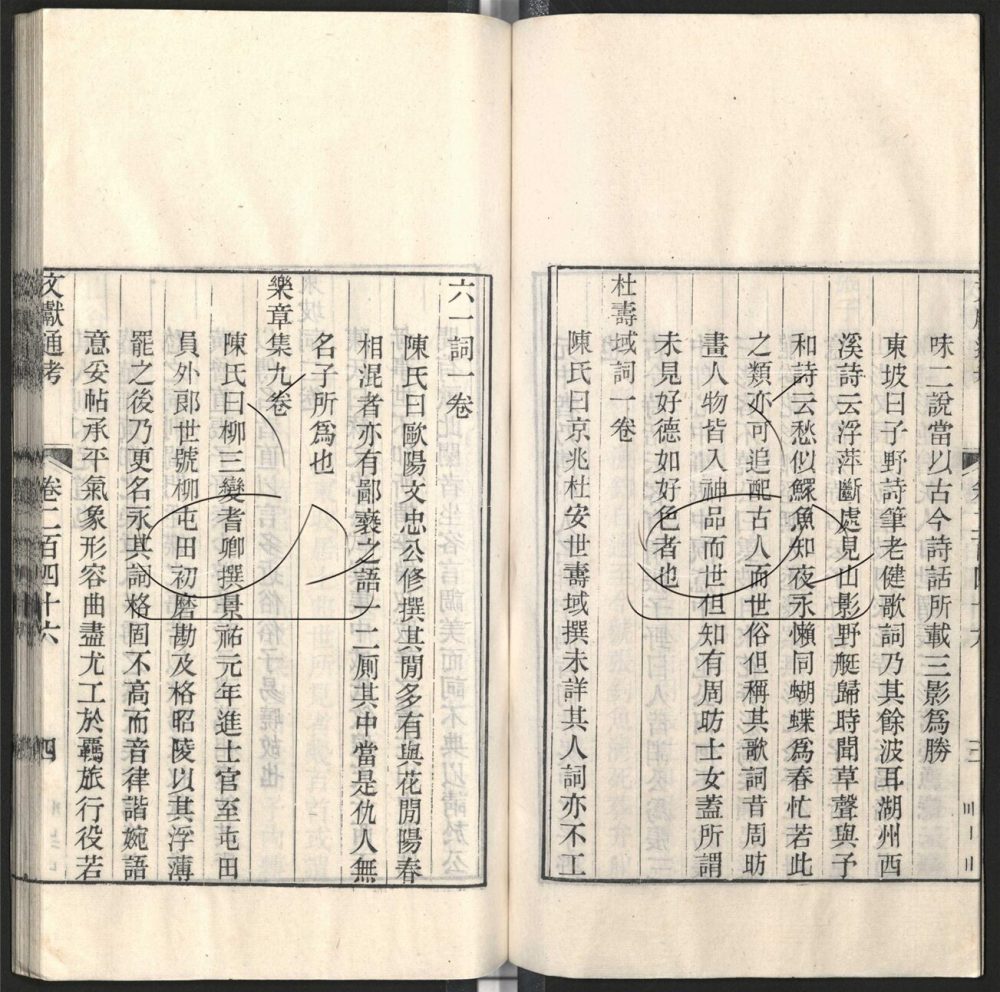 味二說當以古今詩話所載三影爲勝
東坡曰子野詩筆老健歌詞乃其餘波耳湖州西
溪詩云浮萍斷處見山影野艇歸時聞草聲與予
和詩云愁似鰥魚知夜永懶同蝴蝶爲春忙若此
之類亦可追配古人而世俗但稱其歌詞昔周昉
畫人物皆入神品而世但知有周昉士女蓋所謂
未見好德如好色者也
杜壽域詞一卷
陳氏曰京兆杜安世壽域撰未詳其人詞亦不工
六一詞一卷
陳氏曰歐陽文忠公修撰其閒多有與花閒陽春
相混者亦有鄙褻之語一二厠其中當是仇人無
名子所爲也
樂章集九卷
陳氏曰柳三變耆卿撰景祐元年進士官至屯田
員外郎世號柳屯田初磨勘及格昭陵以其浮薄
罷之後乃更名永其詞格固不高而音律諧婉語
意妥帖承平氣象形容曲盡尤工於羈旅行役若
文獻通考 卷二百四十六 四